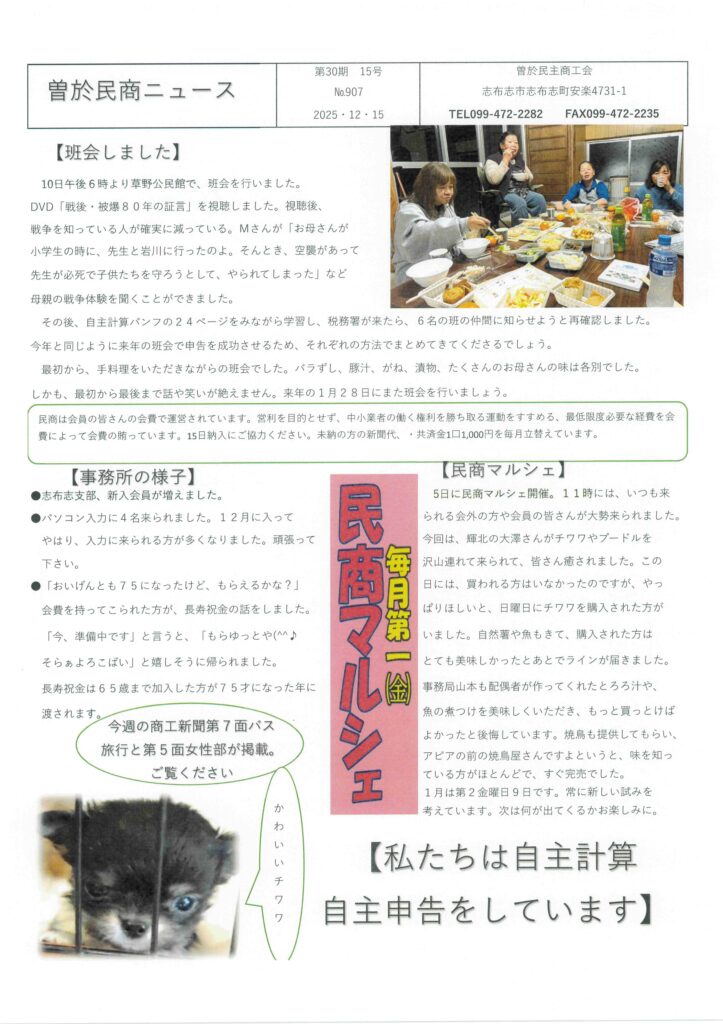 曽於民商ニュース
第30期　15号
№907
2025・12・15
曽於民主商工会
志布志市志布志町安楽4731-1
TEL099-472-2282　FAX099-472-2235
【班会しました】
10日午後６時より草野公民館で、班会を行いました。
DVD「戦後・被爆８０年の証言」を視聴しました。視聴後、
戦争を知っている人が確実に減っている。Mさんが「お母さんが
小学生の時に、先生と岩川に行ったのよ。そんとき、空襲があって
先生が必死で子供たちを守ろうとして、やられてしまった」など
母親の戦争体験を聞くことができました。
その後、自主計算パンフの２４ページをみながら学習し、税務署が来たら、６名の班の仲間に知らせようと再確認しました。
今年と同じように来年の班会で申告を成功させるため、それぞれの方法でまとめてきてくださるでしょう。
最初から、手料理をいただきながらの班会でした。バラずし、豚汁、がね、漬物、たくさんのお母さんの味は各別でした。
しかも、最初から最後まで話や笑いが絶えません。来年の１月２８日にまた班会を行いましょう。
民商は会員の皆さんの会費で運営されています。営利を目的とせず、中小業者の働く権利を勝ち取る運動をすすめる、最低限度必要な経費を会
費によって会費の賄っています。15日納入にご協力ください。未納の方の新聞代、・共済金1口1,000円を毎月立替えています。
【事務所の様子】
●志布志支部、新入会員が増えました。
●パソコン入力に４名来られました。１２月に入って
やはり、入力に来られる方が多くなりました。頑張って
下さい。
●「おいげんとも７５になったけど、もらえるかな？」
会費を持ってこられた方が、長寿祝金の話をしました。
「今、準備中です」と言うと、「もらゆっとや(^^♪
そらぁよろこばい」と嬉しそうに帰られました。
長寿祝金は６５歳まで加入した方が７５才になった年に
渡されます。
今週の商工新聞第７面バス
旅行と第５面女性部が掲載。
ご覧ください
かわいいチワワ
民商マルシェ
毎月第一㈮
【民商マルシェ】
５日に民商マルシェ開催。１１時には、いつも来
られる会外の方や会員の皆さんが大勢来られました。
今回は、輝北の大澤さんがチワワやプードルを
沢山連れて来られて、皆さん癒されました。この
日には、買われる方はいなかったのですが、やっ
ぱりほしいと、日曜日にチワワを購入された方が
いました。自然薯や魚もきて、購入された方は
とても美味しかったとあとでラインが届きました。
事務局山本も配偶者が作ってくれたとろろ汁や、
魚の煮つけを美味しくいただき、もっと買っとけば
よかったと後悔しています。焼鳥も提供してもらい、
アピアの前の焼鳥屋さんですよというと、味を知っ
ている方がほとんどで、すぐ完売でした。
１月は第２金曜日９日です。常に新しい試みを
考えています。次は何が出てくるかお楽しみに。
【私たちは自主計算
自主申告をしています】